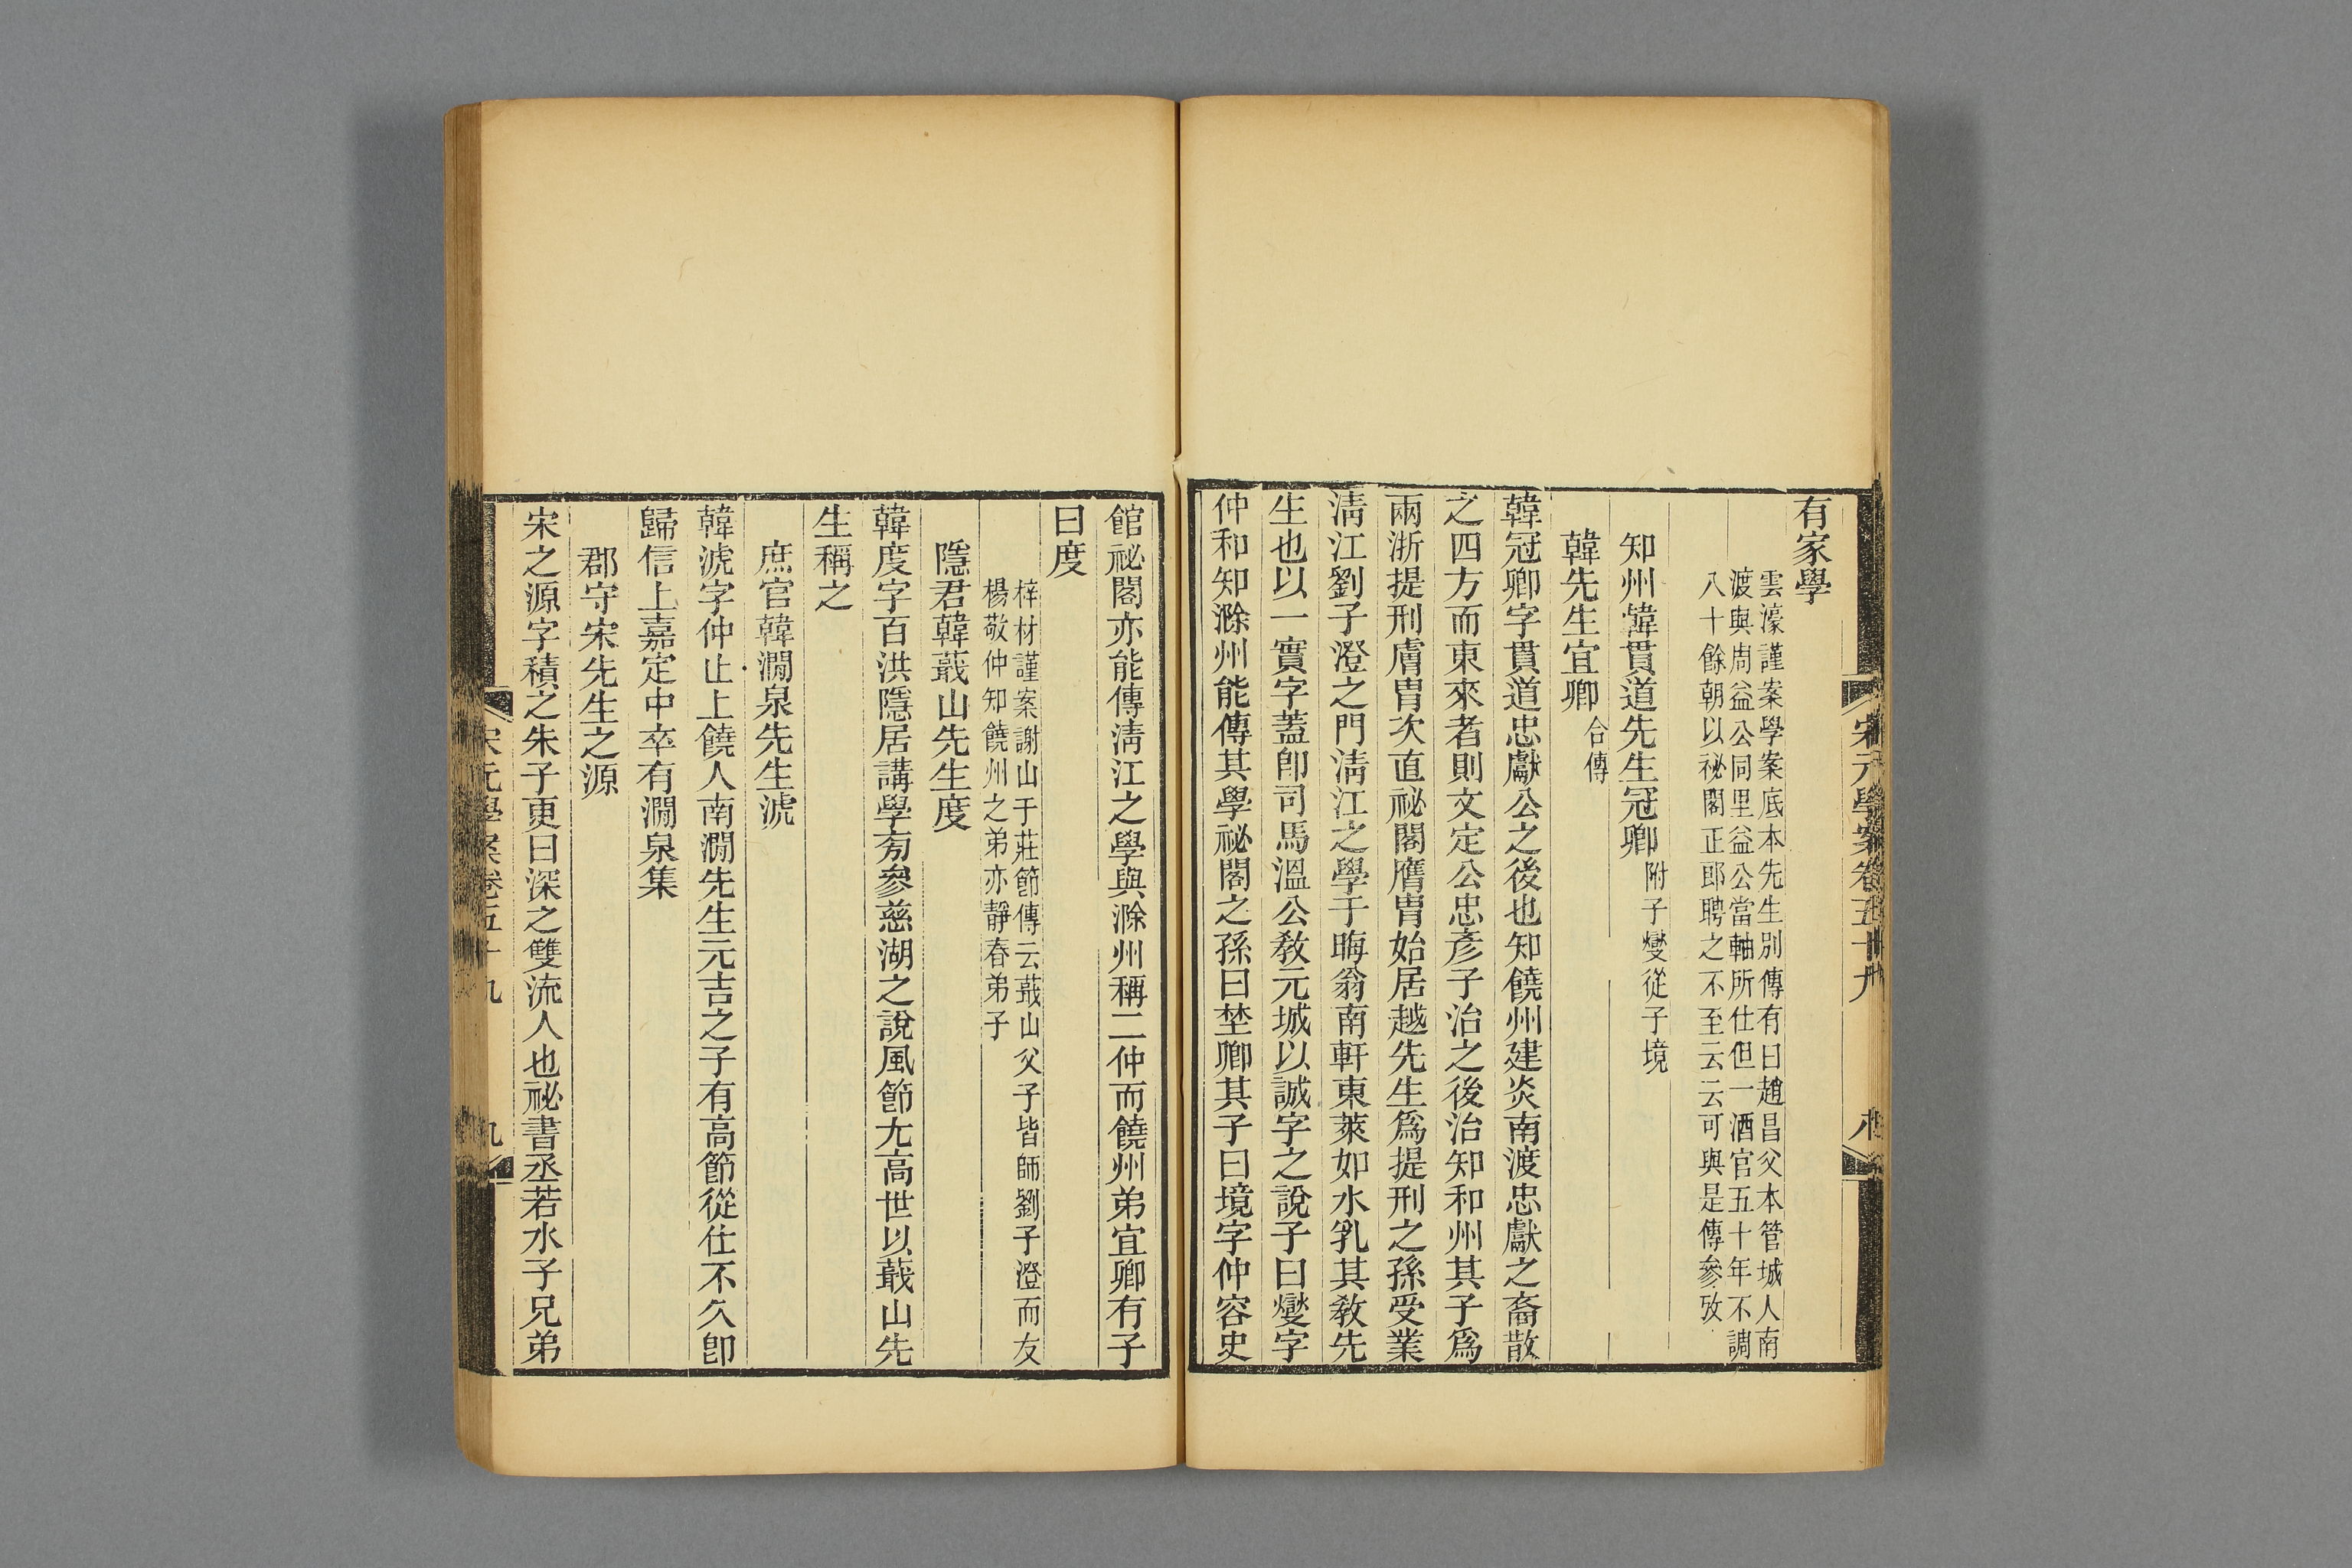 宋元學案卷五十九
有家學
雲濠謹案學案底本先生別傳有曰趙昌父本管城人南
渡與周益公同里益公當軸所仕但一酒官五十年不調
八十餘朝以祕閣正郎聘之不至云云可與是傳參攷
知州韓貫道先生冠卿附子燮從子境
韓先生宜卿合傳
韓冠卿字貫道忠獻公之後也知饒州建炎南渡忠獻之裔散
之四方而東來者則文定公忠彥子治之後治知和州其子爲
兩浙提刑膚冑次直祕閣膺冑始居越先生爲提刑之孫受業
淸江劉子澄之門淸江之學于晦翁南軒東萊如水乳其敎先
生也以一實字蓋卽司馬溫公敎元城以誠字之說子曰燮字
仲和知滁州能傳其學祕閣之孫曰埜卿其子曰境字仲容史
館祕閣亦能傳淸江之學與滁州稱二仲而饒州弟宜卿有子
曰度
梓材謹案謝山于莊節傳云蕺山父子皆師劉子澄而友
楊敬仲知饒州之弟亦靜春弟子
隱君韓蕺山先生度
韓度字百洪隱居講學㫄參慈湖之說風節尢高世以蕺山先
生稱之
庶官韓澗泉先生淲
韓淲字仲止上饒人南澗先生元吉之子有高節從仕不久卽
歸信上嘉定中卒有澗泉集
郡守宋先生之源
宋之源字積之朱子更曰深之雙流人也祕書丞若水子兄弟
宋元學案卷五十九
九